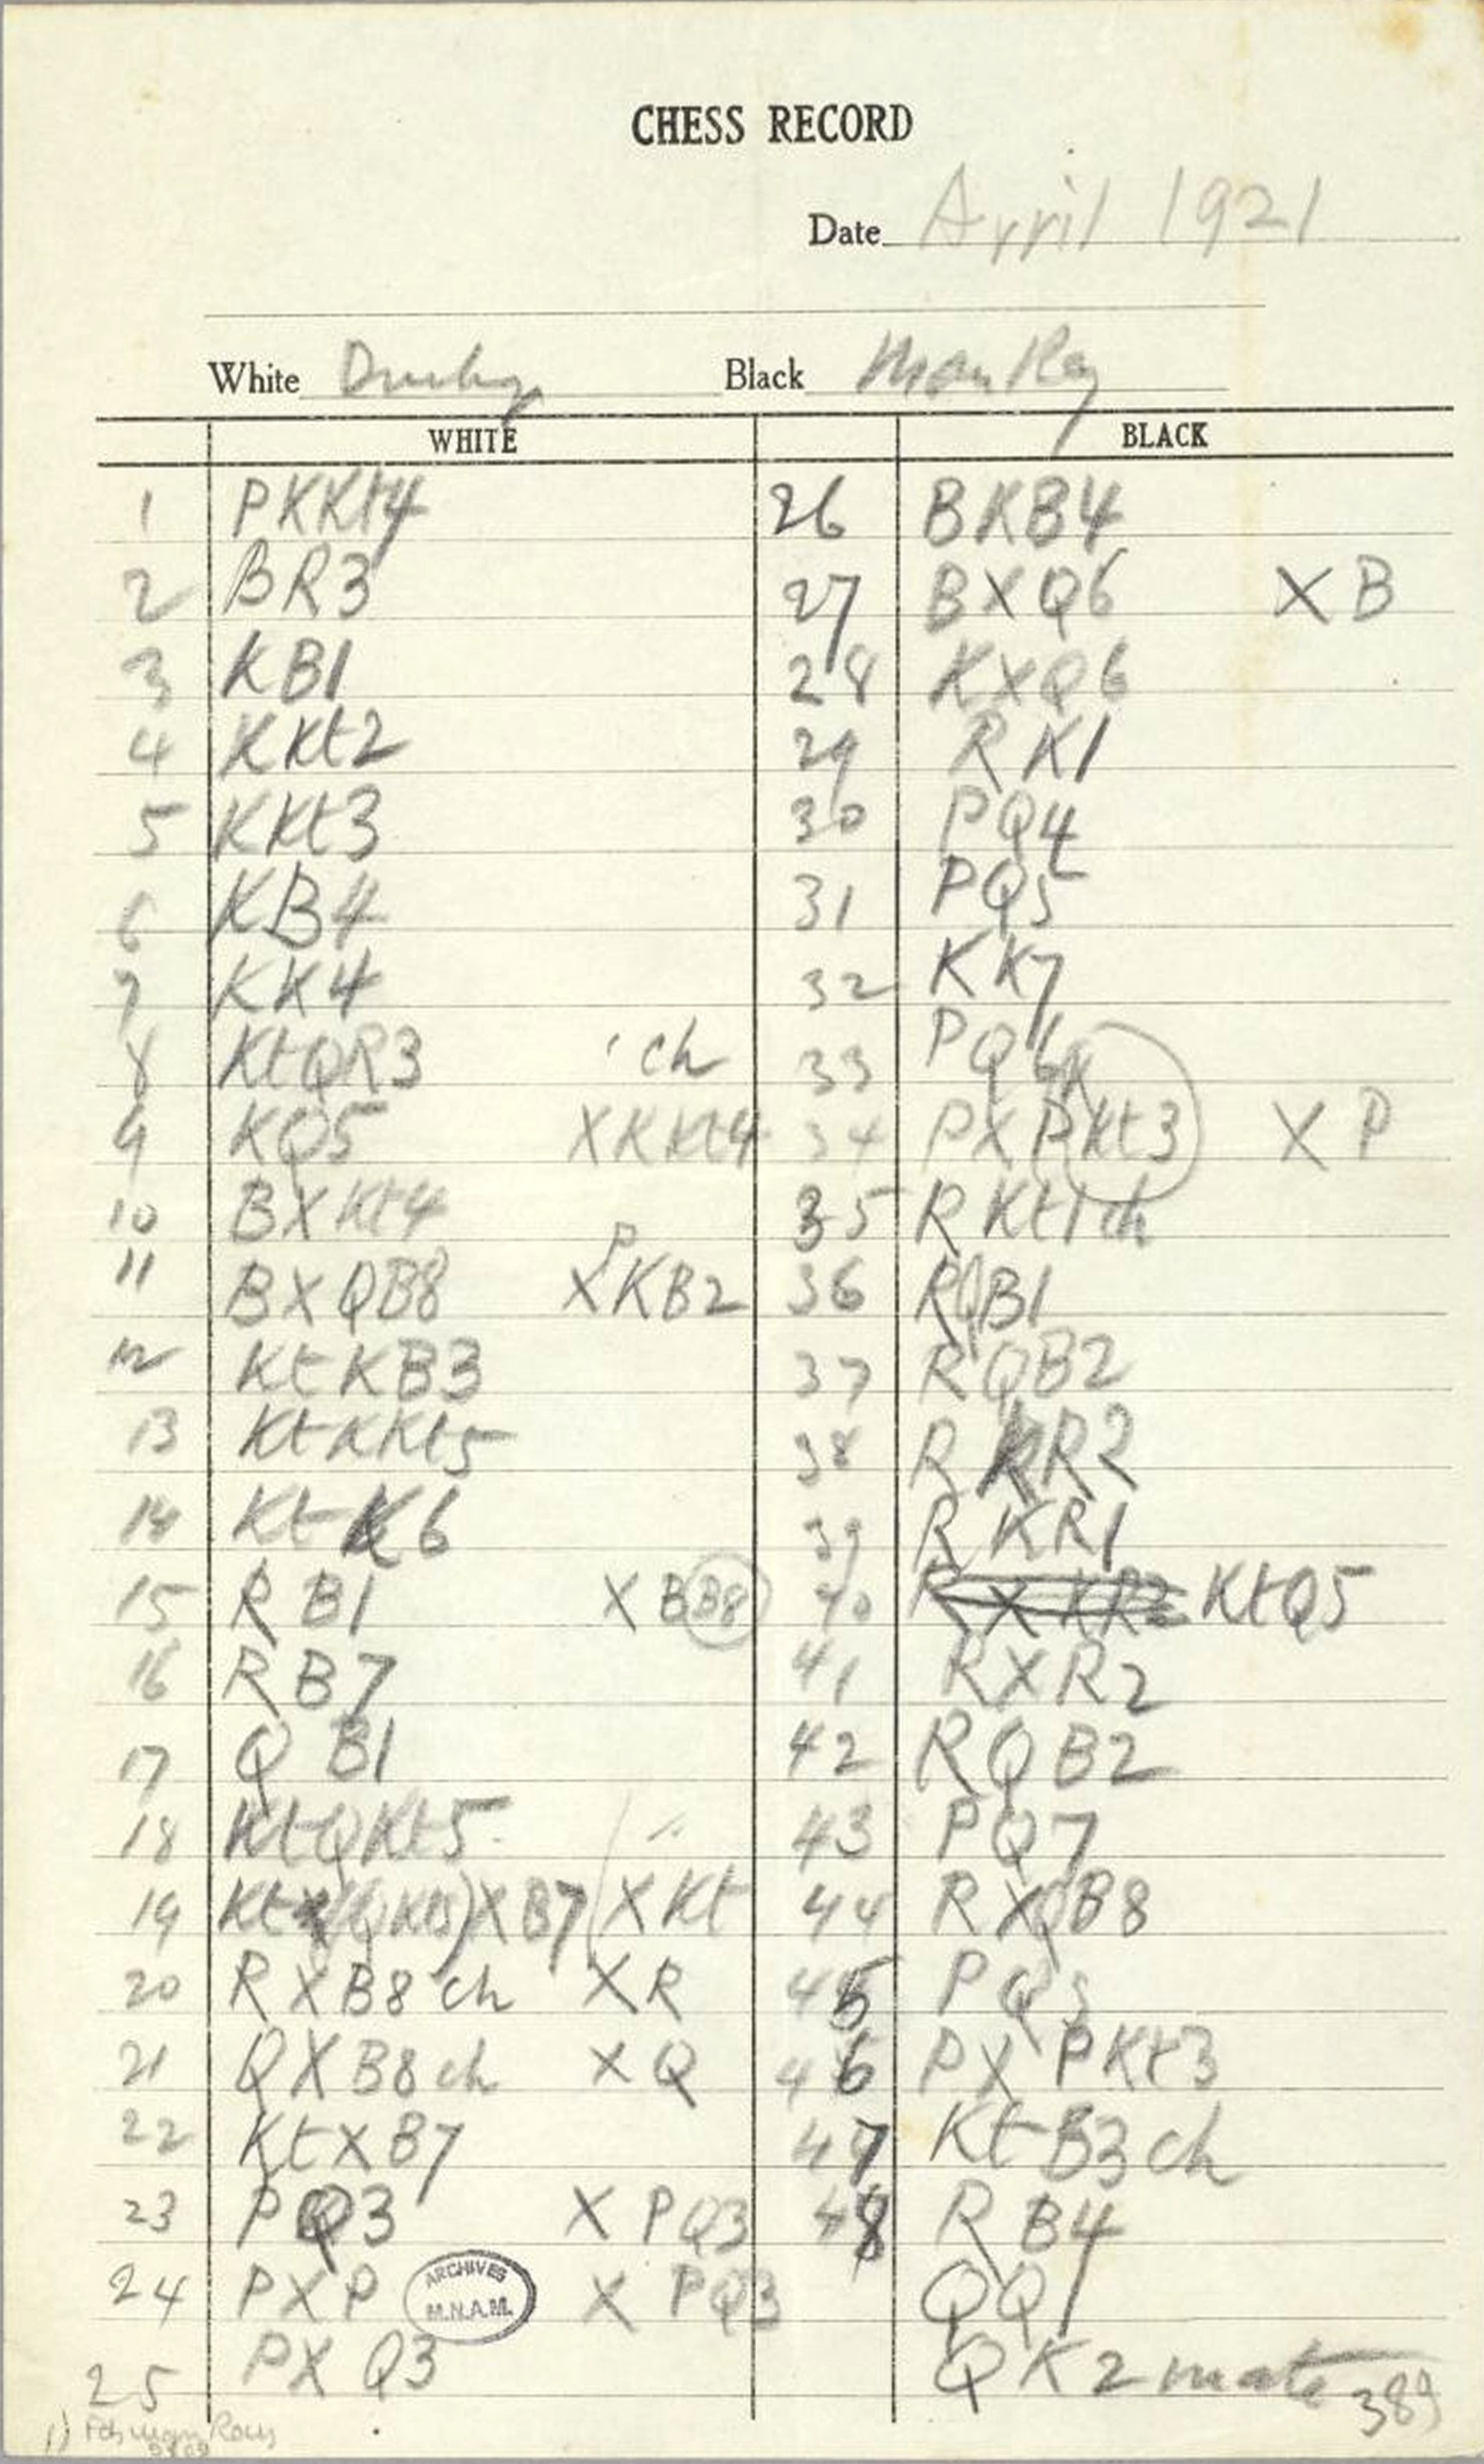 CHESS RECORD
Date April 1921
White Black Man Ray
WHITE BLACK
1 PKKt4 26 BKB4
2 BR3 27 BXQ6 XB
3 KB1 28 KXQ6
4 KKt2 29 RK1
5 KKt3 30 PQ4
6 KB4 31 PQ5
7 KK4 32 KK7
8 KtQR3 ch 33 PQ6
9 KQ5 XKKt4 34 PXPKt3 XP
10 BXKt4 35 RKt1ch
11 BXQB8 XPKB2 36 RQB1
12 KtKB3 37 RQB2
13 KtKKt5 38 R KR2
14 KtK6 39 R KR1
15 R B1 XBB8 40 RXKR2 KtQ5
16 R B7 41 RXR2
17 Q B1 42 RQB2
18 KtQKt5 43 PQ7
19 KtX XB7 XKt 44 RXQB8
20 RXB8 ch XR 45 PQ3
21 QXB8 ch XQ 46 PX PKt3
22 KtXB7 47 KtB3 ch
23 PQ3 XPQ3 48 R B4
24 PXP XPQ3 QQ1
ARCHIVES
M.N.A.M.
25 PXQ3 QK2 mate 389
1) Man Ray